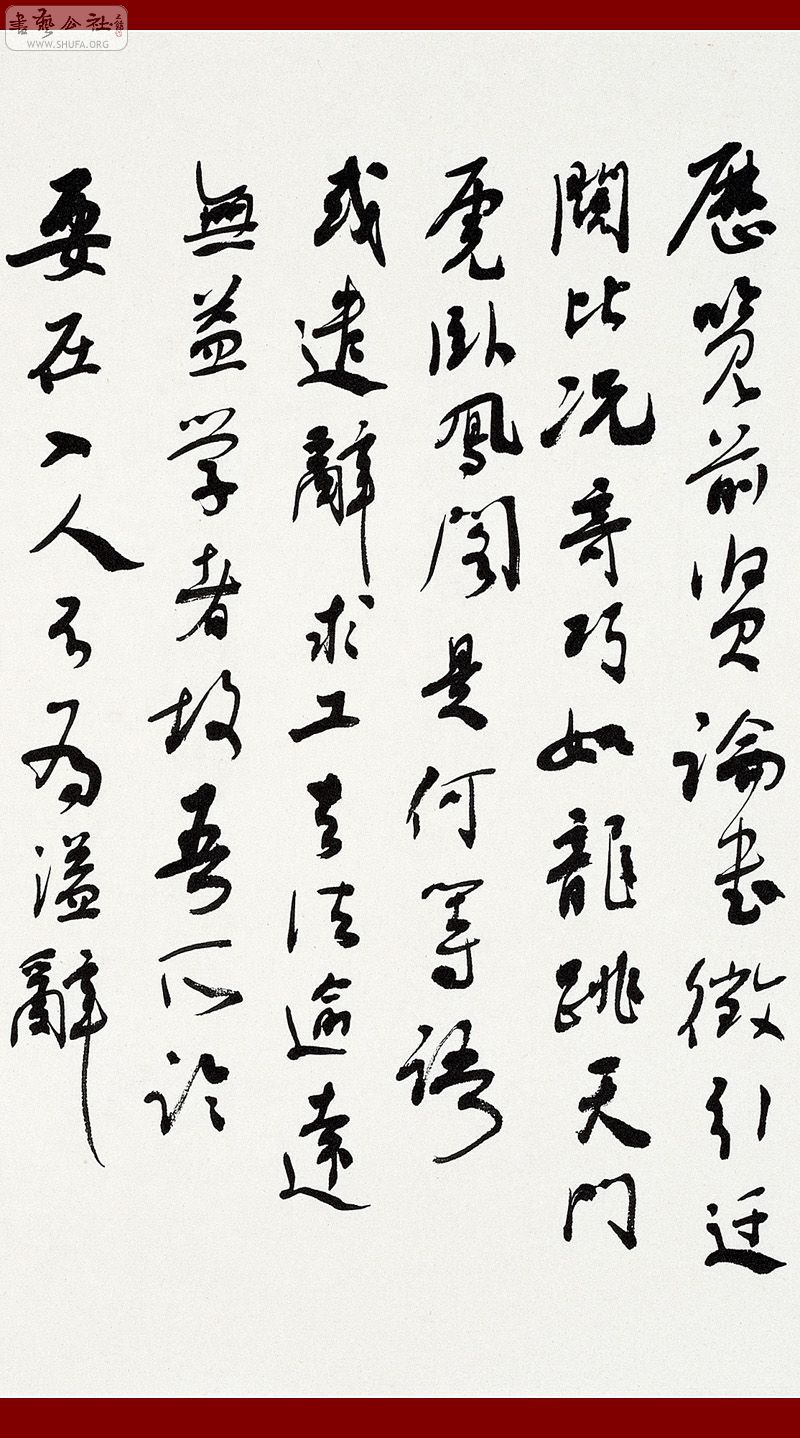 書藝公社
WWW.SHUFA.ORG
歷覽前賢論書徵引迂
闊比况奇巧如龍跳天門
虎卧鳳閣是何等語
或遣辭求工去法逾遠
無益學者故吾所論
要在入人不為溢辭